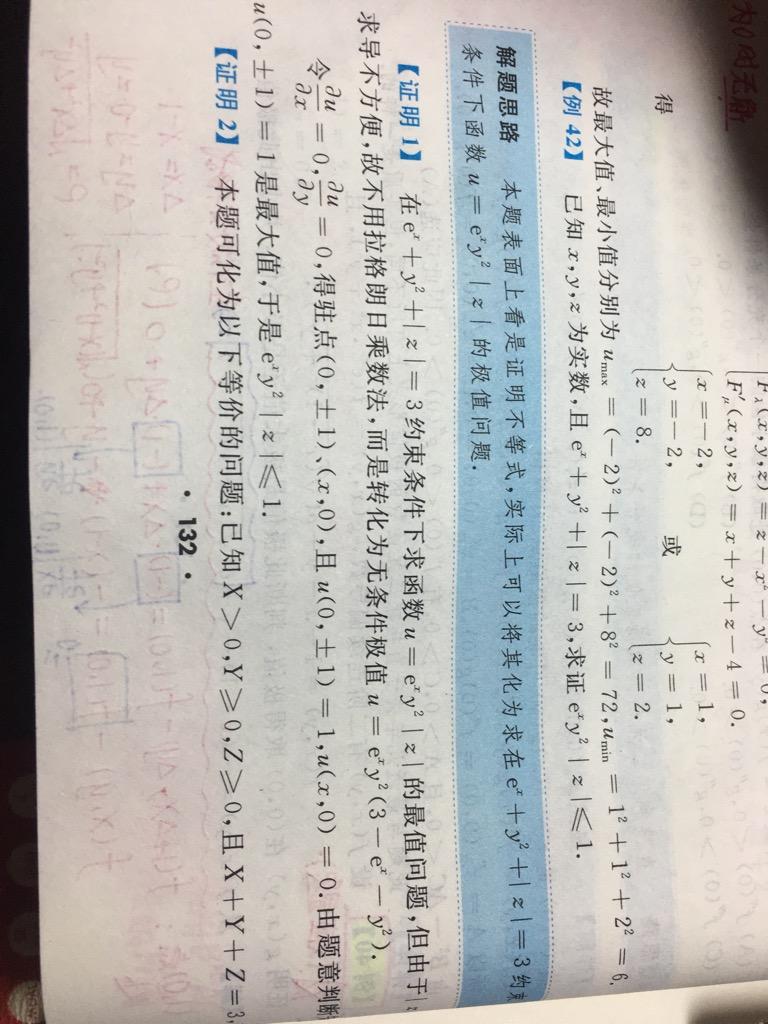 为0时无解
F′λ(x,y,z) = z − x² − y² = 0,
F′μ(x,y,z) = x + y + z − 4 = 0.
得 { x = −2, y = −2, z = 8. 或 { x = 1, y = 1, z = 2.
故最大值、最小值分别为 u_max = (−2)² + (−2)² + 8² = 72, u_min = 1² + 1² + 2² = 6.
【例 42】 已知 x,y,z 为实数,且 eˣ + y² + |z| = 3,求证 eˣy²|z| ≤ 1.
解题思路 本题表面上看是证明不等式,实际上可以将其化为求在 eˣ + y² + |z| = 3 约
条件下函数 u = eˣy²|z| 的极值问题.
【证明 1】 在 eˣ + y² + |z| = 3 约束条件下求函数 u = eˣy²|z| 的最值问题,但由于 |z
求导不方便,故不用拉格朗日乘数法,而是转化为无条件极值 u = eˣy²(3 − eˣ − y²).
令 ∂u/∂x = 0, ∂u/∂y = 0,得驻点(0, ±1)、(x,0),且 u(0, ±1) = 1, u(x,0) = 0. 由题意判断
u(0, ±1) = 1 是最大值,于是 eˣy²|z| ≤ 1.
【证明 2】 本题可化为以下等价的问题:已知 X > 0,Y ≥ 0,Z ≥ 0,且 X + Y + Z = 3,
· 132 ·